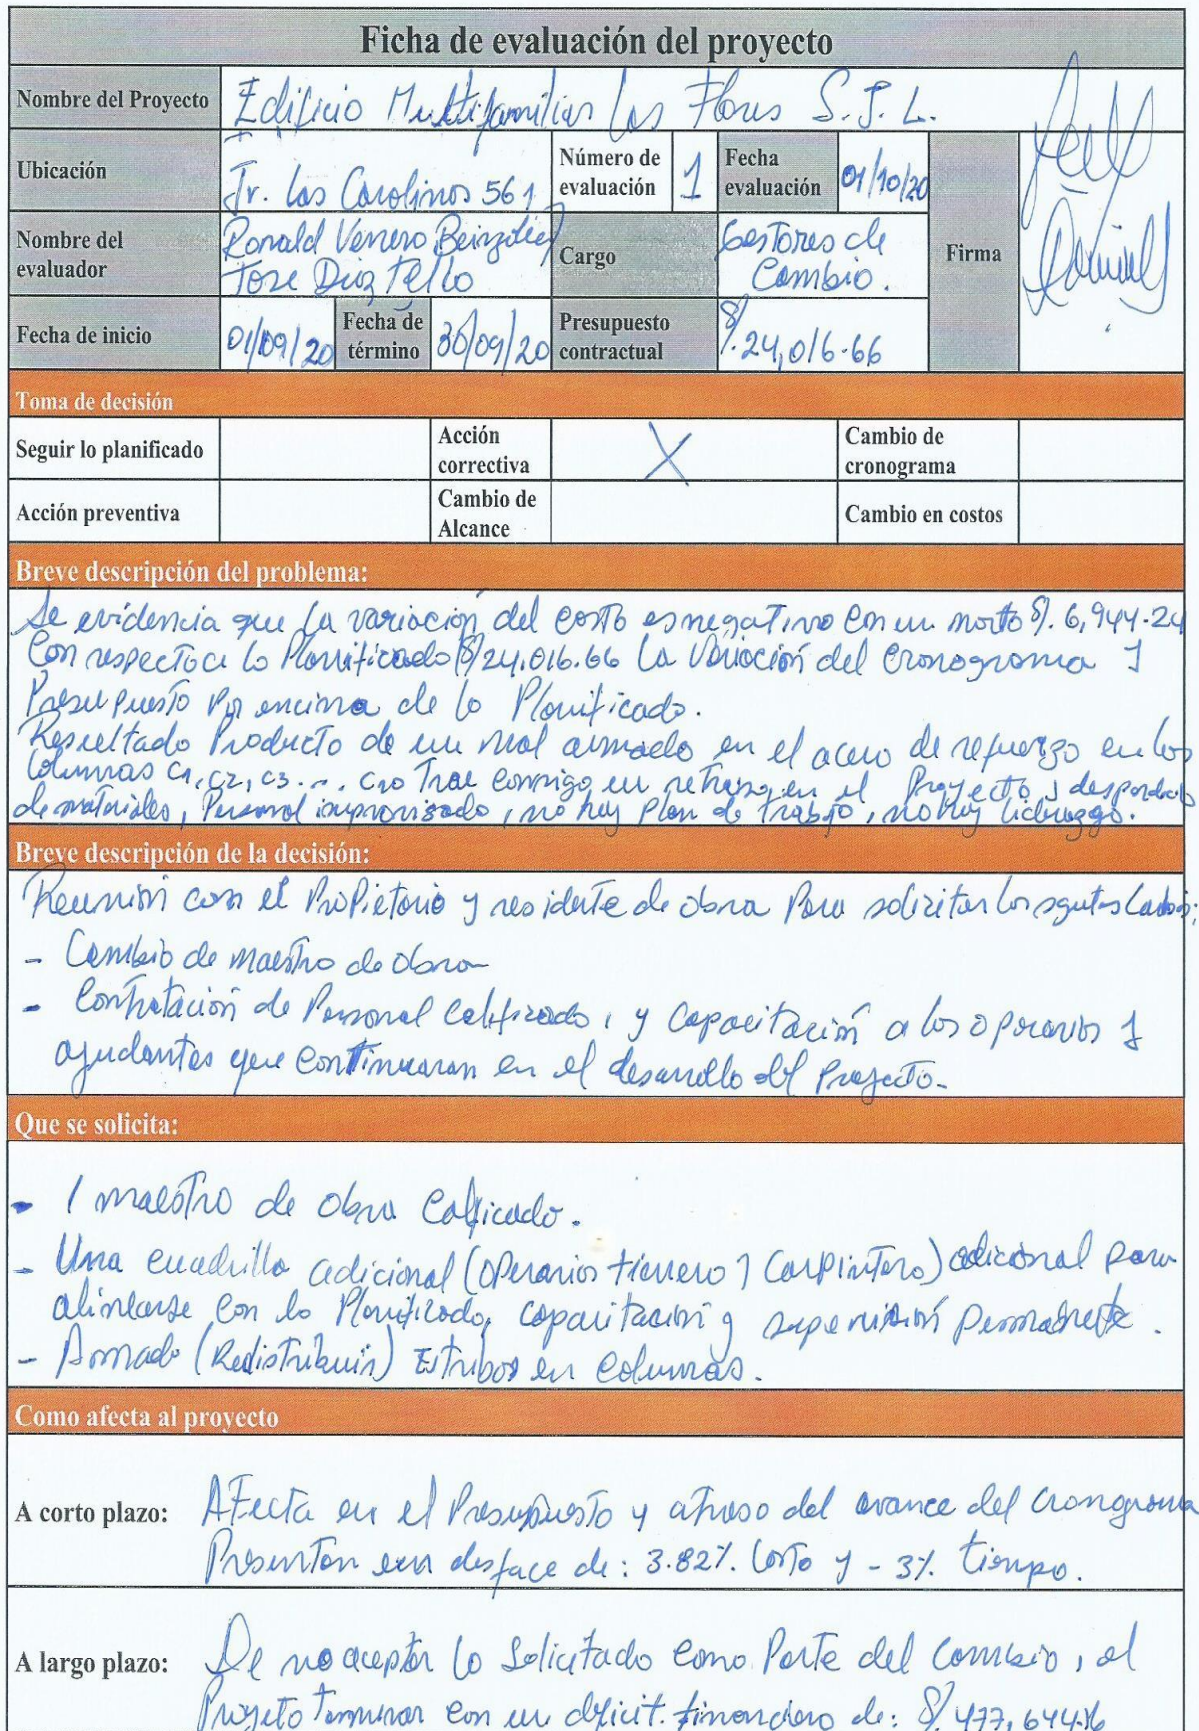 Ficha de evaluación del proyecto
Nombre del Proyecto Edificio Multifamiliar las Flores S.J.L.
Ubicación Jr. Las Carolinos 561 Número de evaluación 1 Fecha evaluación 01/10/20 Firma
Nombre del evaluador Ronald Venero Jose Diaz Tello Cargo Gestores de Cambio.
Fecha de inicio 01/09/20 Fecha de término 30/09/20 Presupuesto contractual S/. 24,016.66
Toma de decisión
Seguir lo planificado Acción correctiva X Cambio de cronograma
Acción preventiva Cambio de Alcance Cambio en costos
Breve descripción del problema:
Se evidencia que la variación del costo es negativo con un monto S/. 6,944.24
Con respecto a lo Planificado S/24,016.66 La Variación del Cronograma y
Presupuesto Por encima de lo Planificado.
Resultado Producto de un mal armado en el acero de refuerzo en los
Columnas C1, C2, C3... C10 Trae consigo un retraso en el Proyecto, desperdicio
de materiales, Personal improvisado, no hay Plan de Trabajo, no hay liderazgo.
Breve descripción de la decisión:
Reunión con el Propietario y residente de obra Para solicitar los
- Cambio de maestro de obra
- Contratación de Personal Calificado, y Capacitación a los operarios y
ayudantes que Continuaran en el desarrollo del Proyecto.
Que se solicita:
- 1 maestro de Obra Calificado.
- Una cuadrilla adicional (Operarios fierrero y Carpintero) adicional para
alinearse con lo Planificado, capacitación y supervisión permanente.
- Armado (Redistribuir) Estribos en Columnas.
Como afecta al proyecto
A corto plazo: Afecta en el Presupuesto y atraso del avance del Cronograma
Presentan un desface de: 3.82% Costo y -3% tiempo.
A largo plazo: De no aceptar lo Solicitado como Parte del Cambio, el
Proyecto Terminar con un déficit. financiero de: S/. 477,644.16